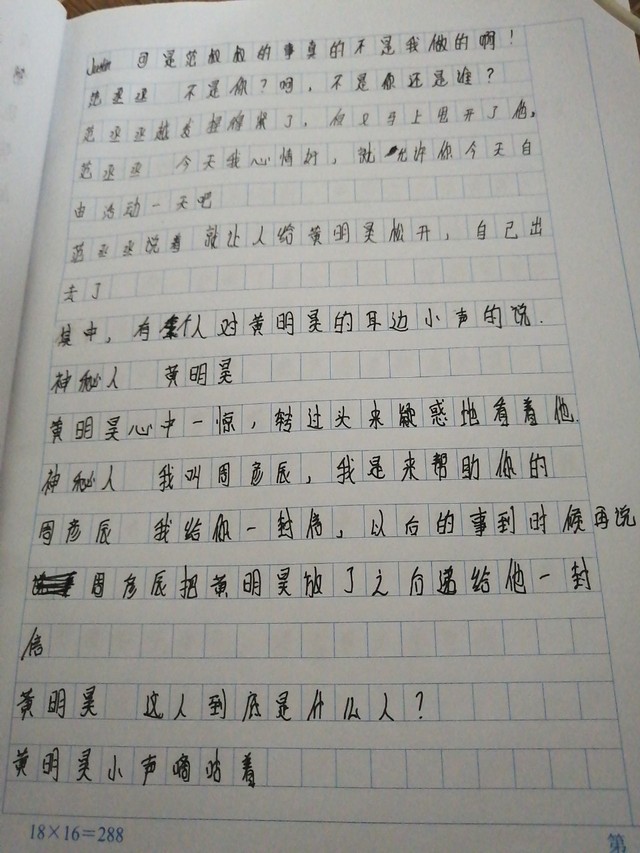 Justin 可是范叔叔的事真的不是我做的啊！
范丞丞 不是你？啊，不是你还是谁？
范丞丞越发捏得紧了，但又马上甩开了他。
范丞丞 今天我心情好，就允许你今天自
由活动一天吧
范丞丞说着 就让人给黄明昊松开，自己出
去了
其中，有个人对黄明昊的耳边小声的说.
神秘人 黄明昊
黄明昊心中一惊，转过头来疑惑地看着他.
神秘人 我叫周彦辰，我是来帮助你的
周彦辰 我给你一封信，以后的事到时候再说
周彦辰把黄明昊放了之后递给他一封
信
黄明昊 这人到底是什么人？
黄明昊小声嘀咕着
18×16=288
第